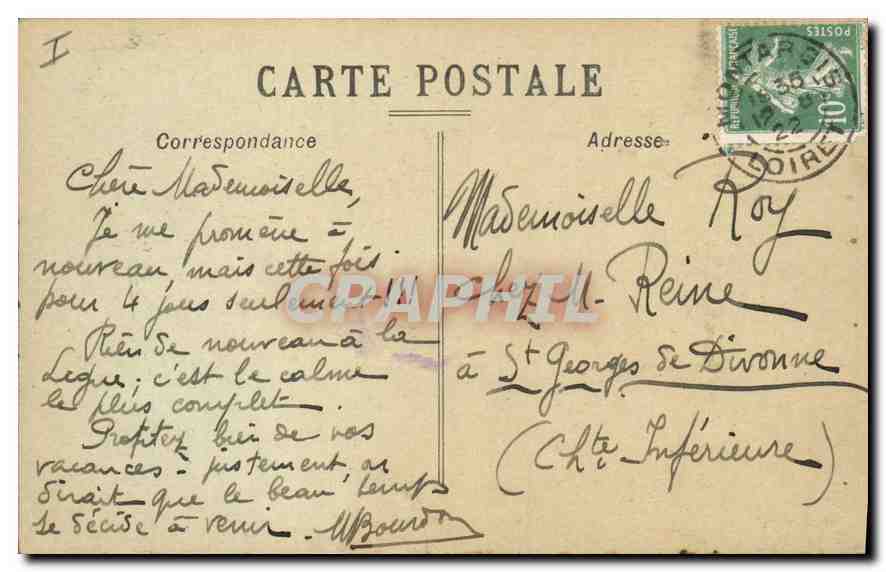 I
CARTE POSTALE
Correspondance
Adresse
Chère Mademoiselle,
Je me promène à
nouveau mais cette fois
pour 4 jours seulement !!!
Rien de nouveau à la
Ligue ; c'est le calme
le plus complet.
Profitez bien de vos
vacances - justement, on
dirait que le beau temps
se décide à venir. MBourdon
Mademoiselle Roy
chez M. Reine
à St Georges de Divonne
(Chte Inférieure)
GRAPHIL
POSTES
REPUBLIQUE FRANÇAISE
10
MONTARGIS
22
LOIRET